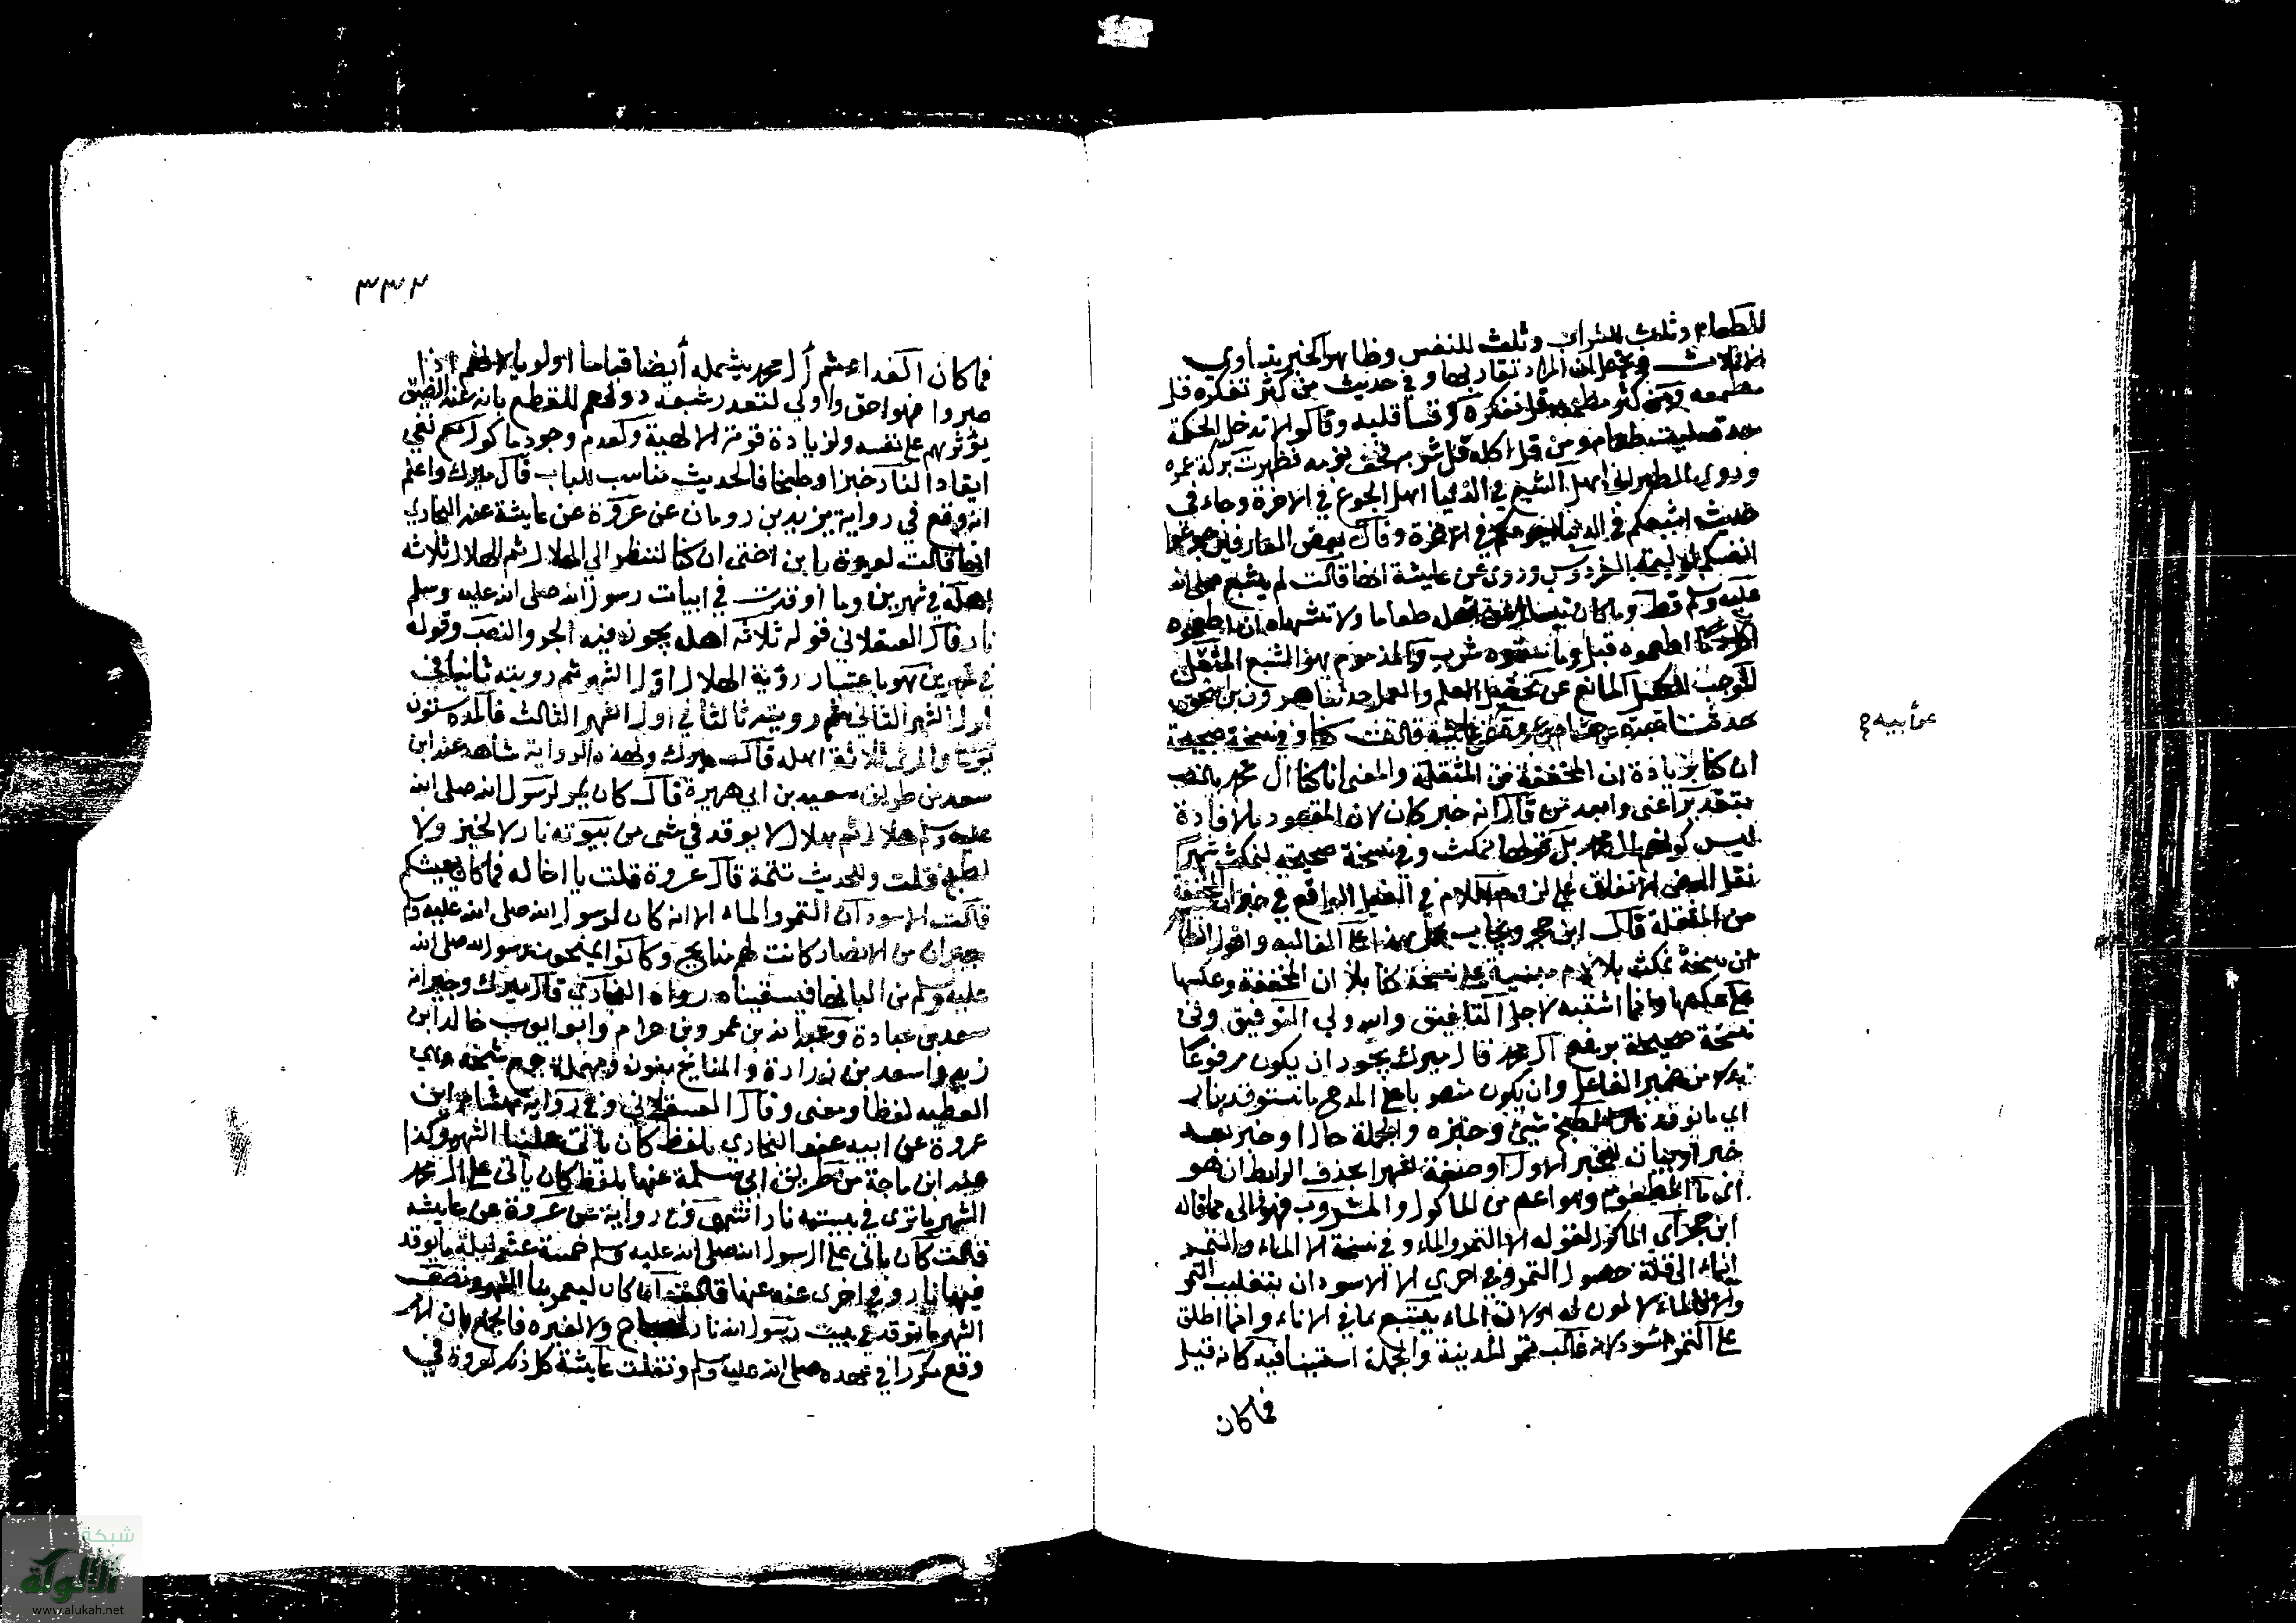 للطعام وثلث للشراب وثلث للنفس وظاهر الخبر يتساوي
الاثلاث ويحتمل ان المراد تقاربها وفي حديث من كثر تفكره قل
مطعمه ومن كثر مطعمه قل تفكره وقسا قلبه وقالوا لا تدخل الحكمة
معدة ملئت طعاما ومن قل اكله قل شربه فخف نومه فظهرت بركة عمره
وروي الطبراني اهل الشبع في الدنيا اهل الجوع في الاخرة وجاء في
حديث اشبعكم في الدنيا اجوعكم في الاخرة وقال بعض العارفين جوعوا
انفسكم لوليمة الفردوس وروي عن عايشة انها قالت لم يشبع صلى الله
عليه وسلم قط وما كان يسال اهله طعاما ولا تشهاه ان اطعموه
اكل وما اطعموه قبل وما سقوه شرب والمذموم هو الشبع المثقل
الموجب للكسل المانع عن تحصيل العلم والعمل حدثنا هرون بن اسحق
حدثنا عبدة عن هشام بن عروة عن عايشة قالت كنا وفي نسخة صحيحة
عن أبيه
ان كنا بزيادة ان المخففة من المثقلة والمعنى انا كنا ال محمد بالنصب
بتقدير اعني وابعد من قال انه خبر كان لان المقصود بالافادة
ليس كونهم ال محمد بل قولها نمكث وفي نسخة صحيحة لنمكث شهرا
نقل الرضى الاتفاق على لزوم اللام في الفعل الواقع في خبر ان المخففة
من المثقلة قال ابن حجر ويجاب بحمل هذا على الغالب واقول الظاهر
ان نسخة نمكث بلا لام مبنية على نسخة كنا بلا ان المخففة وعكسها
على عكسها وانما اشتبه لاجل التلفيق والله ولي التوفيق وفي
نسخة صحيحة برفع آل محمد قال ميرك يجوز ان يكون مرفوعا
بدلا من ضمير الفاعل وان يكون منصوبا على المدح ما نستوقد بنار
اي ما نوقد نارا لطبخ شيئ وخبزه والجملة حال او خبر بعد
خبر او بيان للخبر الاول او صفة لشهرا بحذف الرابط ان هو
اي ما المطعوم وهو اعم من الماكول والمشروب فهو اولى مما قاله
ابن حجر اي الماكول لقوله الا التمر والماء وفي نسخة الا الماء والتمر
ايماء الى قلة حصول التمر وفي اخرى الا الاسودان بتغليب التمر
والا فالماء لا لون له اولان الماء يتبع بما في الاناء وانما اطلق
على التمر اسود لانه غالب تمر المدينة والجملة استينافية كانه قيل
فما كان
٣٣٢
فما كان الغداء ثم أل محمد يشمله أيضا قياما اولويا لانهم اذا
صبروا فهو احق واولي لتعدد شبعه دونهم للقطع بانه عند الضيق
يؤثرهم على نفسه ولزيادة قوته الالهية وكعدم وجود ماكولهم نفي
ايقاد النار خبزا وطبخا فالحديث مناسب للباب قال ميرك واعلم
انه وقع في رواية يزيد بن رومان عن عروة عن عايشة عند البخاري
انها قالت لعروة يا ابن اختى ان كنا لننظر الي الهلال ثم الهلال ثلاثة
اهلة في شهرين وما اوقدت في ابيات رسول الله صلى الله عليه وسلم
نار فقال العسقلاني قوله ثلاثة اهلة يجوز فيه الجر والنصب وقوله
في شهرين هو باعتبار رؤية الهلال اول الشهر ثم رويته ثانيا في
اول الشهر الثاني ثم رويته ثالثا في اول الشهر الثالث فالمدة ستون
يوما والمرئي ثلاثة اهلة قال ميرك ولهذه الرواية شاهد عند ابن
سعد من طريق سعيد بن ابي هريرة قال كان يمر لرسول الله صلى الله
عليه وسلم هلال ثم هلال لا يوقد في شي من بيوته نار لا لخبز ولا
لطبخ قلت وللحديث تتمة قال عروة قلت يا خاله فما كان يعيشكم
قالت الاسودان التمر والماء الا انه كان لرسول الله صلى الله عليه وسلم
جيران من الانصار كانت لهم منايح وكانوا يمنحون رسول الله صلى الله
عليه وسلم من البانها فيسقيناه رواه البخاري قال ميرك وجيرانه
سعد بن عبادة وعبد الله بن عمرو بن حرام وابو ايوب خالد ابن
زيد واسعد بن زرارة والمنايح بنون ومهملة جمع منيحة وهي
العطيه لفظا ومعنى وقال العسقلاني وفي رواية هشام ابن
عروة عن ابيه عند البخاري بلفظ كان ياتي علينا الشهر وكذا
عند ابن ماجة من طريق ابي سلمة عنها بلفظ كان يأتى على ال محمد
الشهر ما نرى في بيته نارا انتهى وفي رواية عن عروة عن عايشة
قالت كان ياتى على ال رسول الله صلى الله عليه وسلم خمسة عشر ليلة ما يوقد
فيها نار وفي اخرى عنه عنها قالت ان كان ليمر بنا الشهر ونصف
الشهر ما يوقد في بيت رسول الله نار لمصباح ولا لغيره فالجمع بان الامر
وقع مكررا في عهده صلى الله عليه وسلم ونقلت عايشة كل ذلك لعروة في
شبكة
الألوكة
www.alukah.net